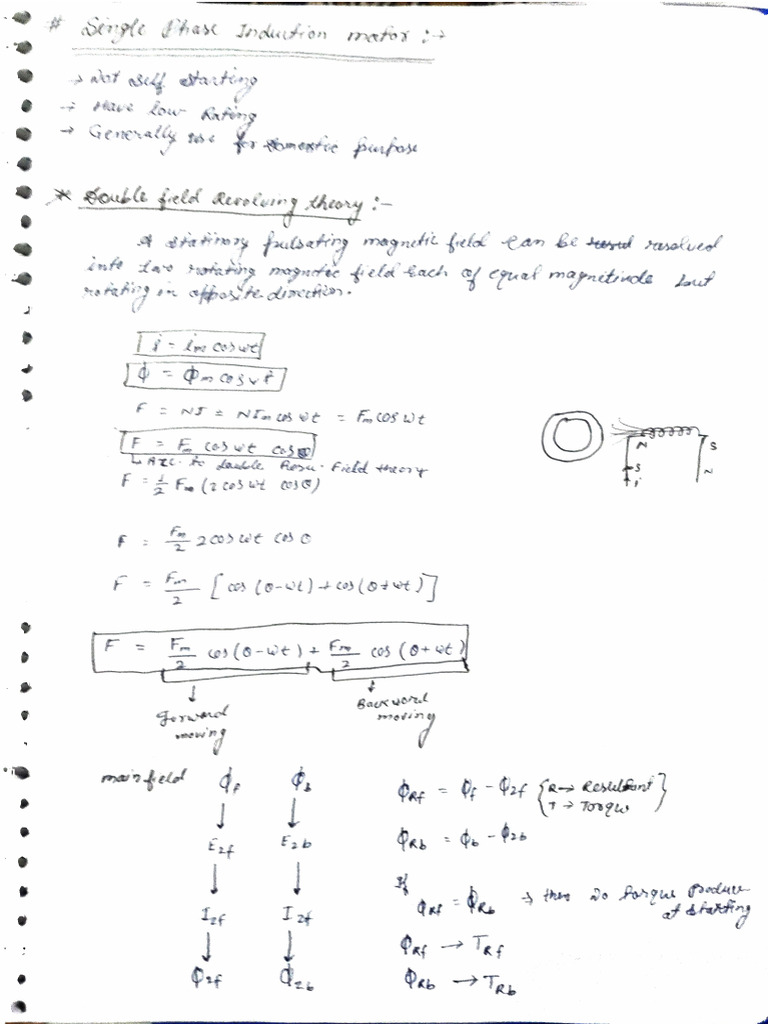 # Single Phase Induction motor :→
→ Not Self Starting
→ Have low Rating
→ Generally use for Domestic purpose
* Double field Revolving theory :-
A stationary pulsating magnetic field can be resolved
into two rotating magnetic field each of equal magnetitude but
rotating in opposite direction.
i = im cos wt
ϕ = ϕm cos wt
F = NI = NIm cos wt = Fm cos wt
F = Fm cos wt cos θ
↳ Acc. to double Revu. Field theory
F = 1/2 Fm (2 cos wt cos θ)
N S
S N
i
F = Fm/2 2 cos wt cos θ
F = Fm/2 [cos (θ-wt) + cos (θ+wt)]
F = Fm/2 cos (θ-wt) + Fm/2 cos (θ+wt)
↓ Forward moving
↓ Backword moving
main field ϕf ϕb
↓ ↓
E2f E2b
↓ ↓
I2f I2f
↓ ↓
ϕ2f ϕ2b
ϕRf = ϕf - ϕ2f {R → Resultant
T → Torque}
ϕRb = ϕb - ϕ2b
If
ϕRf = ϕRb → then No torque Produce
at starting
ϕRf → TRf
ϕRb → TRb